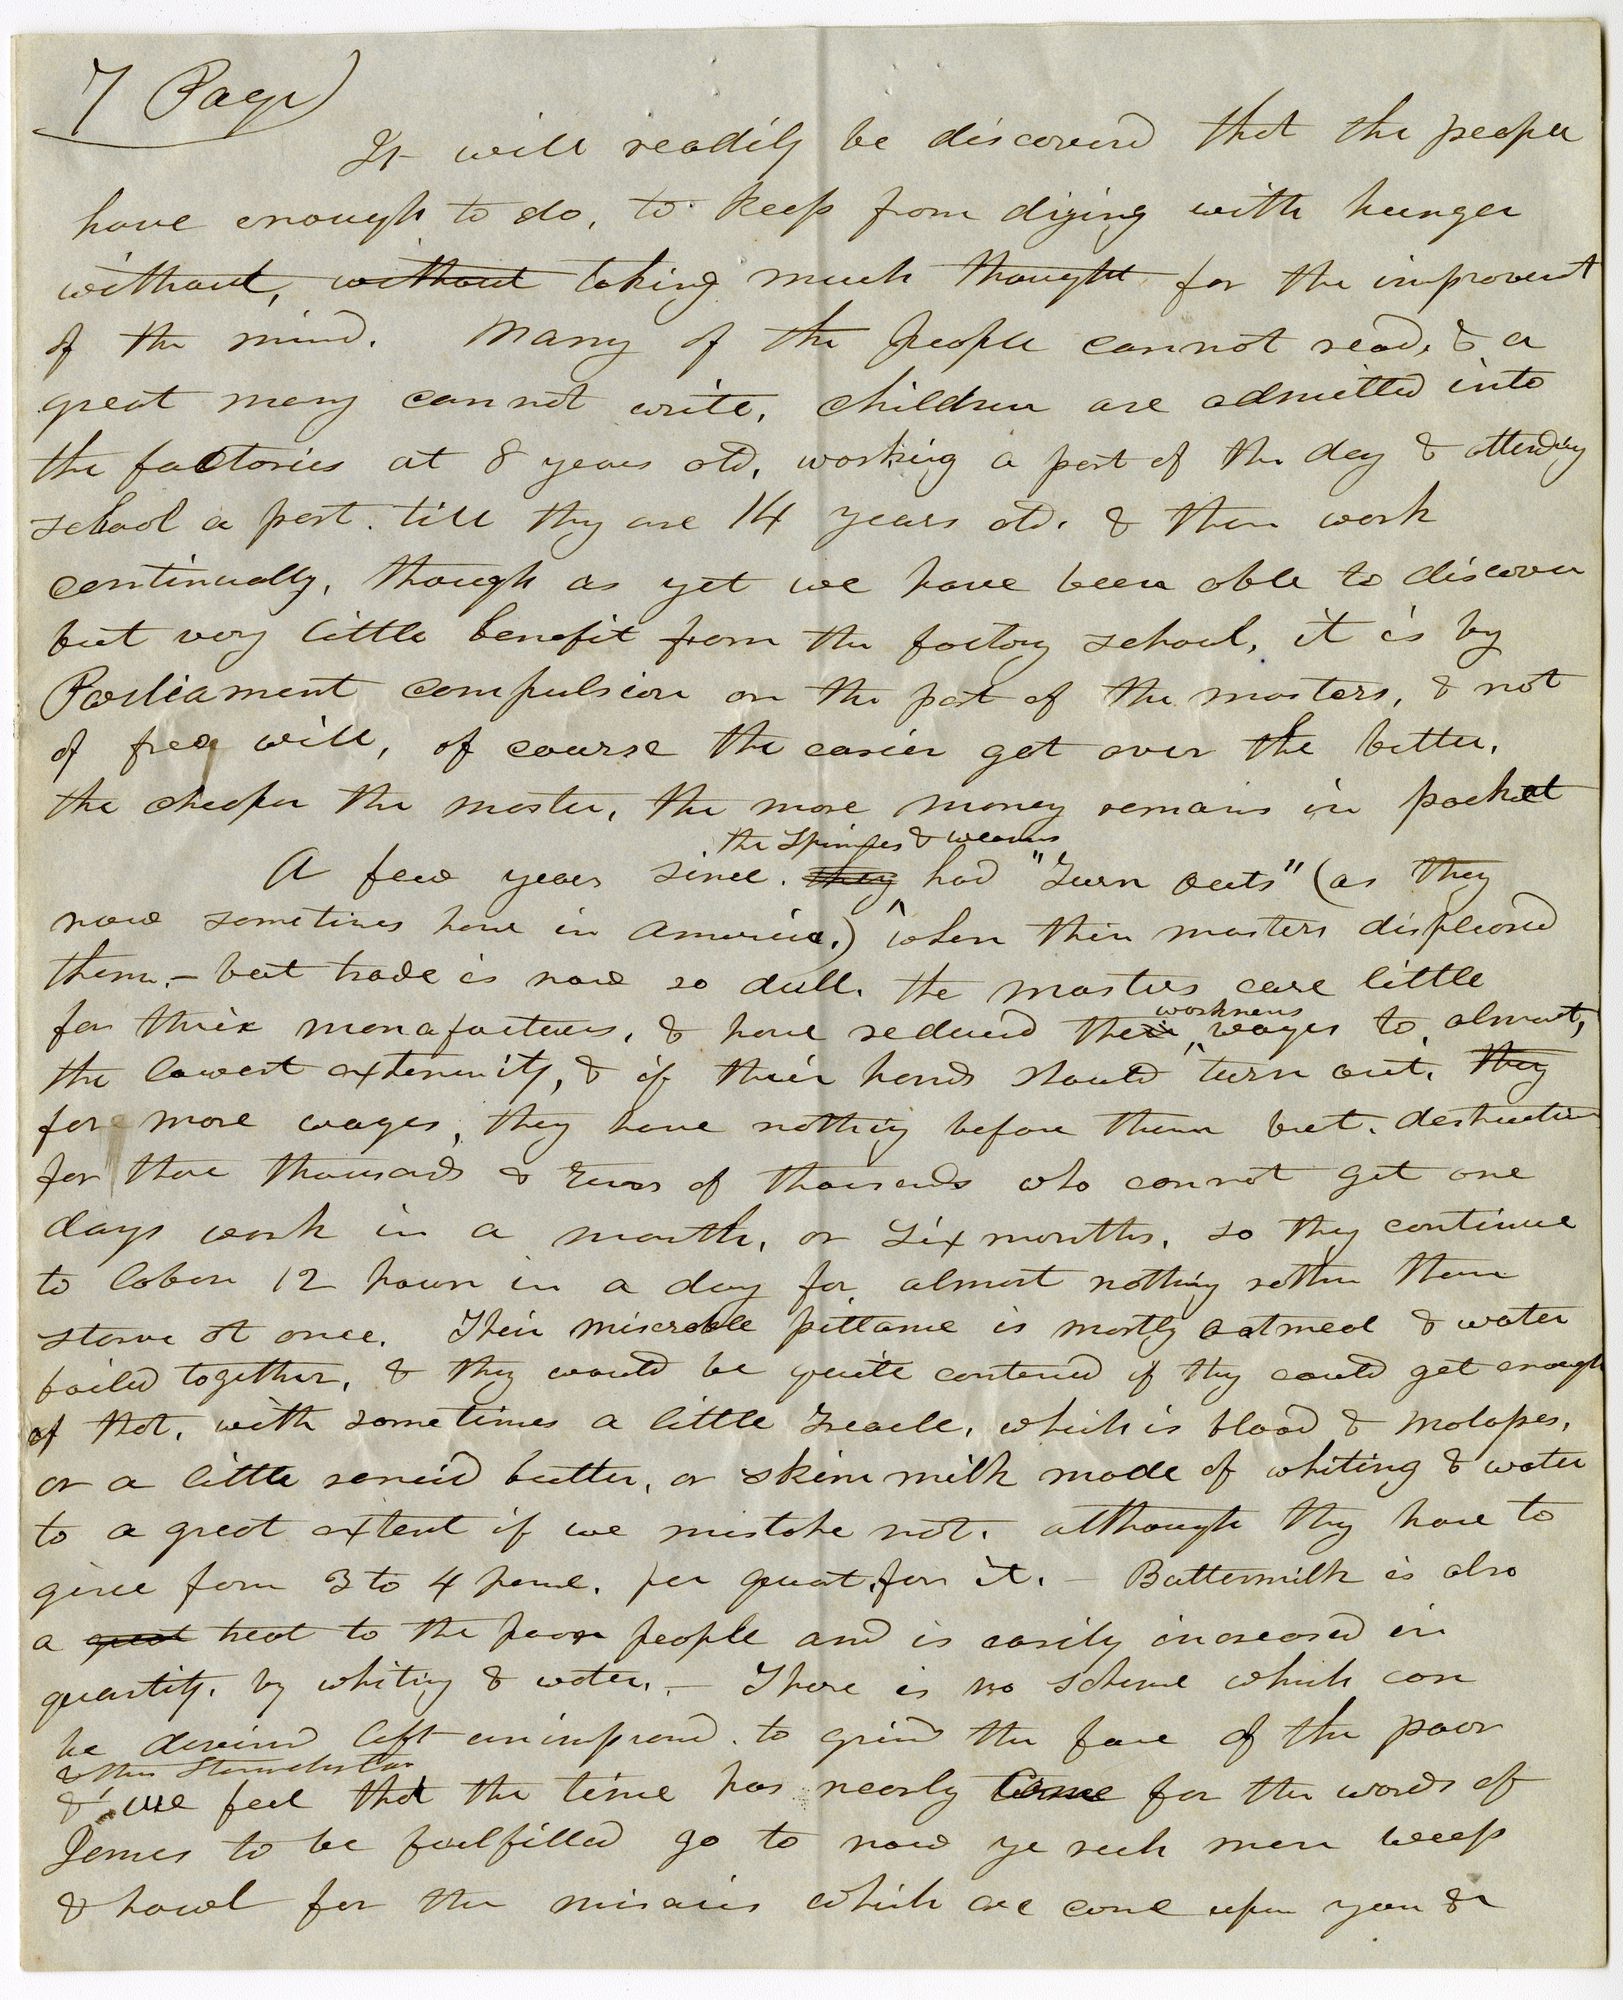 7 Page)
It will readily be discovered that the people
have enough to do, to keep from diging with hunger
without, without taking much thought for the improvemt
of the mind. Many of the people cannot read, & a
great many cannot write, children are admitted into
the factories at 8 years old, working a part of the day & attending
school a part. till they are 14 years old. & then work
continually, though as yet we have been able to discover
but very little benefit from the factory school, it is by
Parliament compulsion on the part of the masters, & not
of free will, of course the easier got over the better,
the cheaper the master, the more money remains in pocket
the Spinners & weavers
A few years since. they had "Turn outs" (as they
now sometimes have in America.) when their masters displeased
them, – but trade is now so dull. the masters care little
for their manafactures, & have reduced their wages to almost,
workmens
the lowest extremity, & if their hands should turn out. they
for more wages, they have nothing before them but. destruction
for there thousands & Tens of thousands who cannot get one
days work in a month, or six months, so they continue
to labor 12 hours in a day for almost nothing rather than
starve at once. Their miserable pittance is mostly oatmeal & water
boiled together, & they would be quite contened if they could get enough
of that, with sometimes a little Treacle, which is blood & molasses,
or a little rancid butter, or skim milk made of whiting & water
to a great extent if we mistake not. although they have to
give from 3 to 4 pence. per quart for it. – Buttermilk is also
a great treat to the poor people and is easily increased in
quantity. by whiting & water. – There is no scheme which can
be devised left unimproved. to grind the face of the poor
& we feel that the time has nearly come for the words of
James to be fulfilled go to now ye rich men weep
& howl for the miseries which are come upon you &c